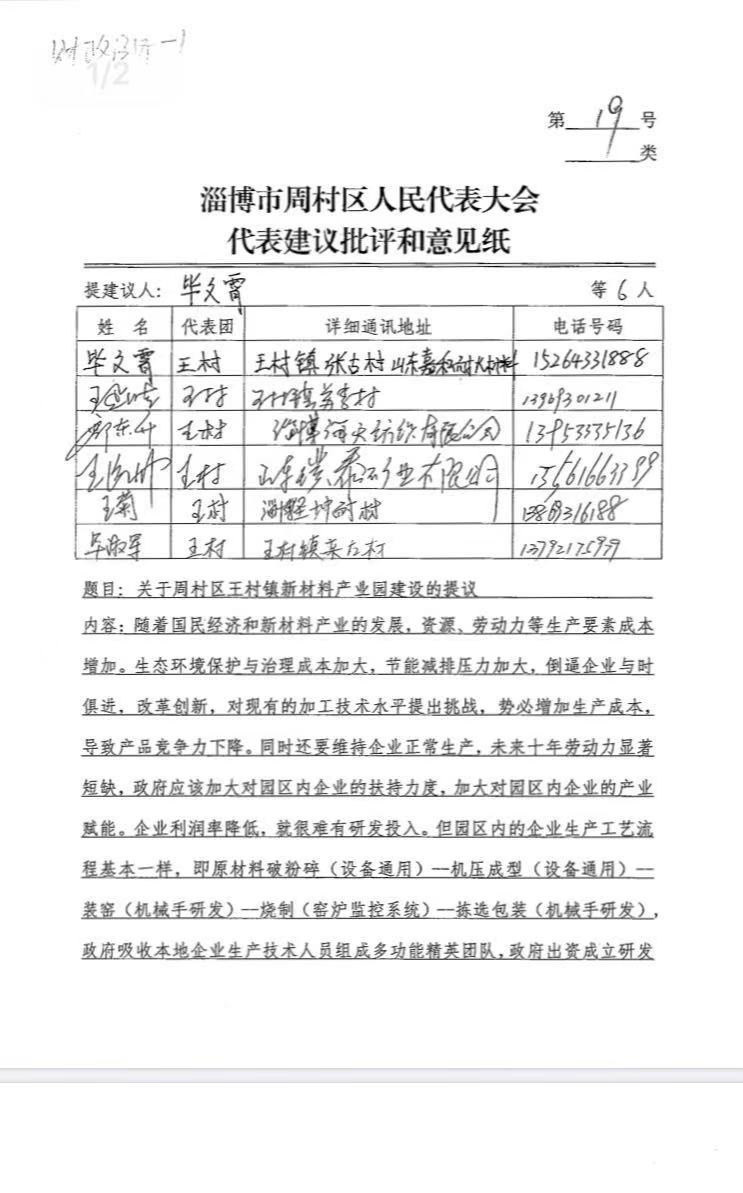 财政经济-1
1/2
第 19 号
类
淄博市周村区人民代表大会
代表建议批评和意见纸
提建议人：毕文霄 等 6 人
姓 名 代表团 详细通讯地址 电话号码
毕文霄 王村 王村镇张古村山东嘉和耐火材料 15264331888
王村 王村镇 村 13969301211
郑东升 王村 淄博海天纺织有限公司 13953335136
王 王村 山东 泰 业有限公司 13561663399
王菊 王村 淄博 坤耐材 13869316188
毕淑军 王村 王村镇 村
题目：关于周村区王村镇新材料产业园建设的提议
内容：随着国民经济和新材料产业的发展，资源、劳动力等生产要素成本
增加。生态环境保护与治理成本加大，节能减排压力加大，倒逼企业与时
俱进，改革创新，对现有的加工技术水平提出挑战，势必增加生产成本，
导致产品竞争力下降。同时还要维持企业正常生产，未来十年劳动力显著
短缺，政府应该加大对园区内企业的扶持力度，加大对园区内企业的产业
赋能。企业利润率降低，就很难有研发投入。但园区内的企业生产工艺流
程基本一样，即原材料破粉碎（设备通用）—机压成型（设备通用）—
装窑（机械手研发）—烧制（窑炉监控系统）—拣选包装（机械手研发），
政府吸收本地企业生产技术人员组成多功能精英团队，政府出资成立研发